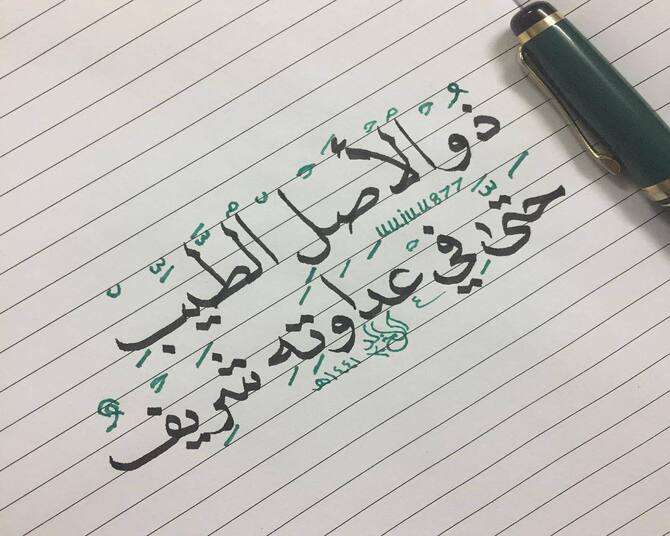 ذُو الْأَصْلِ الطَّيِّبِ
حَتَّىٰ فِي عَدَاوَتِهِ شَرِيفٌ
١٤٤١هـ